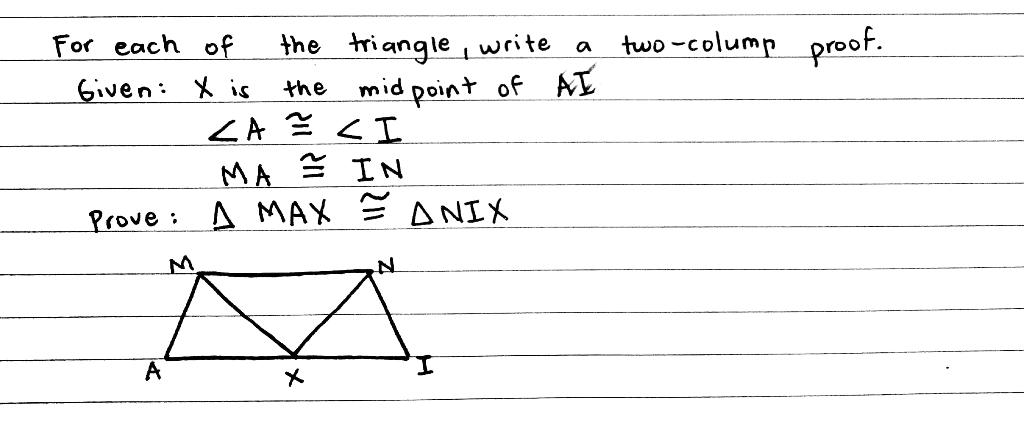 For each of the triangle, write a two-colump proof.
Given: X is the midpoint of AI
<A ≅ <I
MA ≅ IN
Prove: Δ MAX ≅ ΔNIX
M N
A X I